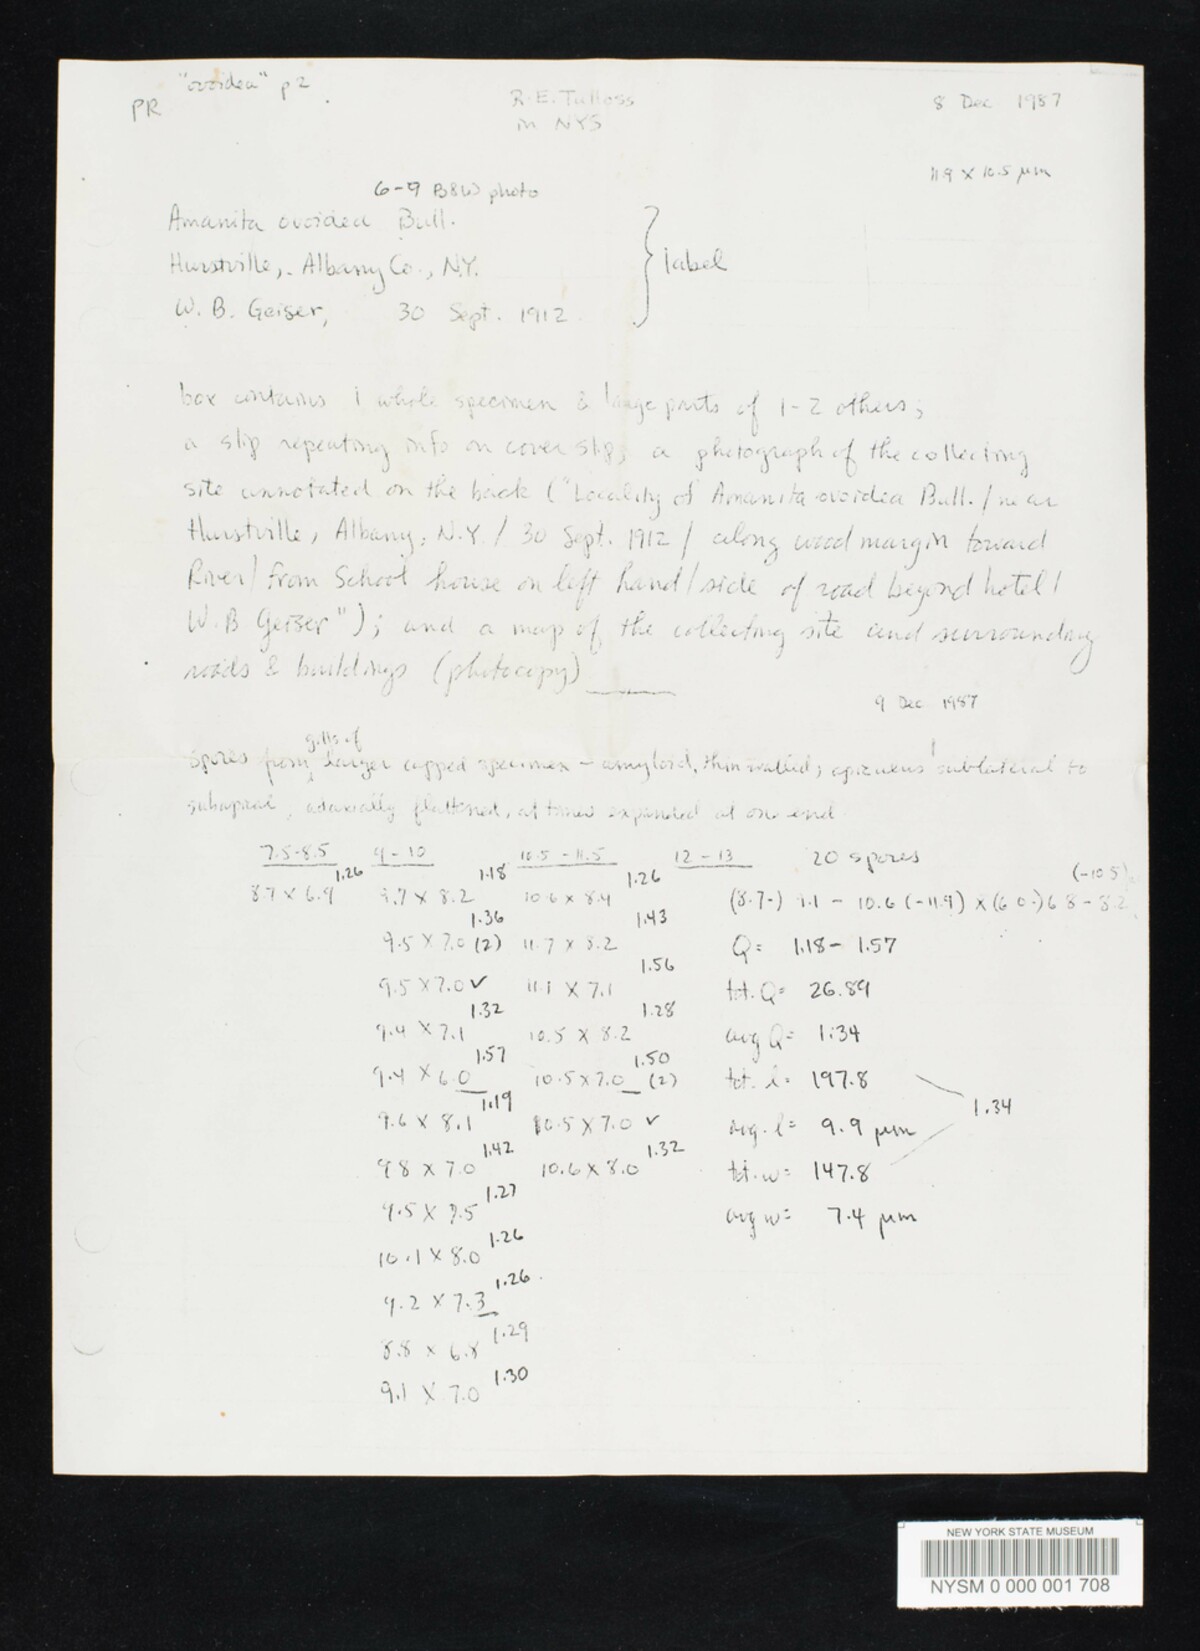 "ovoidea" p 2
PR
R.E. Tulloss
in NYS
8 Dec 1987
11.9 X 10.5 µm
6-9 B&W photo
Amanita ovoidea Bull.
Hurstville, Albany Co., N.Y.
W. B. Geiser, 30 Sept. 1912
} label
box contains 1 whole specimen & large parts of 1-2 others;
a slip repeating info on cover slip, a photograph of the collecting
site annotated on the back ("Locality of Amanita ovoidea Bull. / near
Hurstville, Albany, N.Y. / 30 Sept. 1912 / along wood margin toward
River / from School house on left hand / side of road beyond hotel /
W. B Geiser"); and a map of the collecting site and surrounding
roads & buildings (photocopy)
9 Dec 1987
gills of
spores from larger capped specimen – amyloid, thin walled; apiculus sublateral to
subapical, adaxially flattened, at times expanded at one end
7.5-8.5 9-10 10.5-11.5 12-13 20 spores
8.7 X 6.9 1.26 9.7 X 8.2 1.18 10.6 X 8.4 1.26 (8.7-) 9.1 - 10.6 (-11.9) X (6.0-) 6.8 - 8.2 (-10.5)
9.5 X 7.0 (2) 1.36 11.7 X 8.2 1.43 Q= 1.18 - 1.57
9.5 X 7.0 ✓ 11.1 X 7.1 1.56 tot. Q= 26.89
9.4 X 7.1 1.32 10.5 X 8.2 1.28 avg Q= 1.34
9.4 X 6.0 1.57 10.5 X 7.0 (2) 1.50 tot. l= 197.8
9.6 X 8.1 1.19 10.5 X 7.0 ✓ avg. l= 9.9 µm 1.34
9.8 X 7.0 1.42 10.6 X 8.0 1.32 tot. w= 147.8
9.5 X 7.5 1.27 avg w= 7.4 µm
10.1 X 8.0 1.26
9.2 X 7.3 1.26
8.8 X 6.8 1.29
9.1 X 7.0 1.30
NEW YORK STATE MUSEUM
NYSM 0 000 001 708